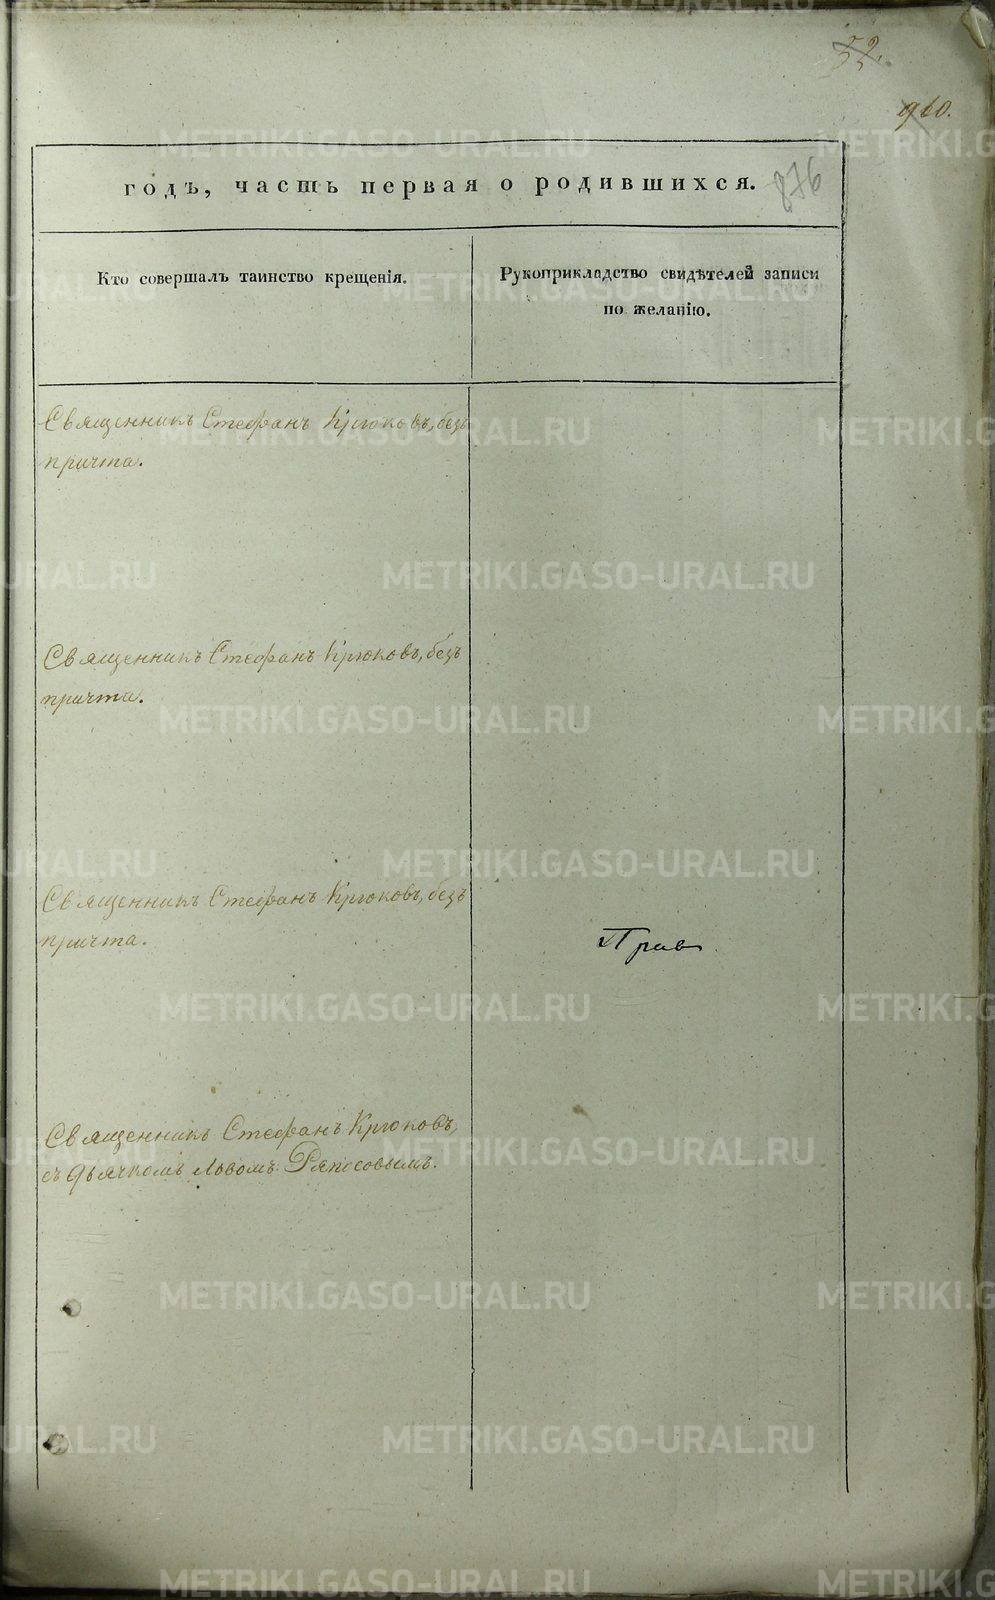 52.
960.
876
годъ, часть первая о родившихся.
Кто совершалъ таинство крещенія.
Рукоприкладство свидѣтелей записи
по желанію.
Священникъ Стефанъ Крюковъ, безъ
причта.
Священникъ Стефанъ Крюковъ, безъ
причта.
Священникъ Стефанъ Крюковъ, безъ
причта.
Прав
Священникъ Стефанъ Крюковъ,
съ дьячкомъ Львомъ Ряпосовымъ.
METRIKI.GASO-URAL.RU